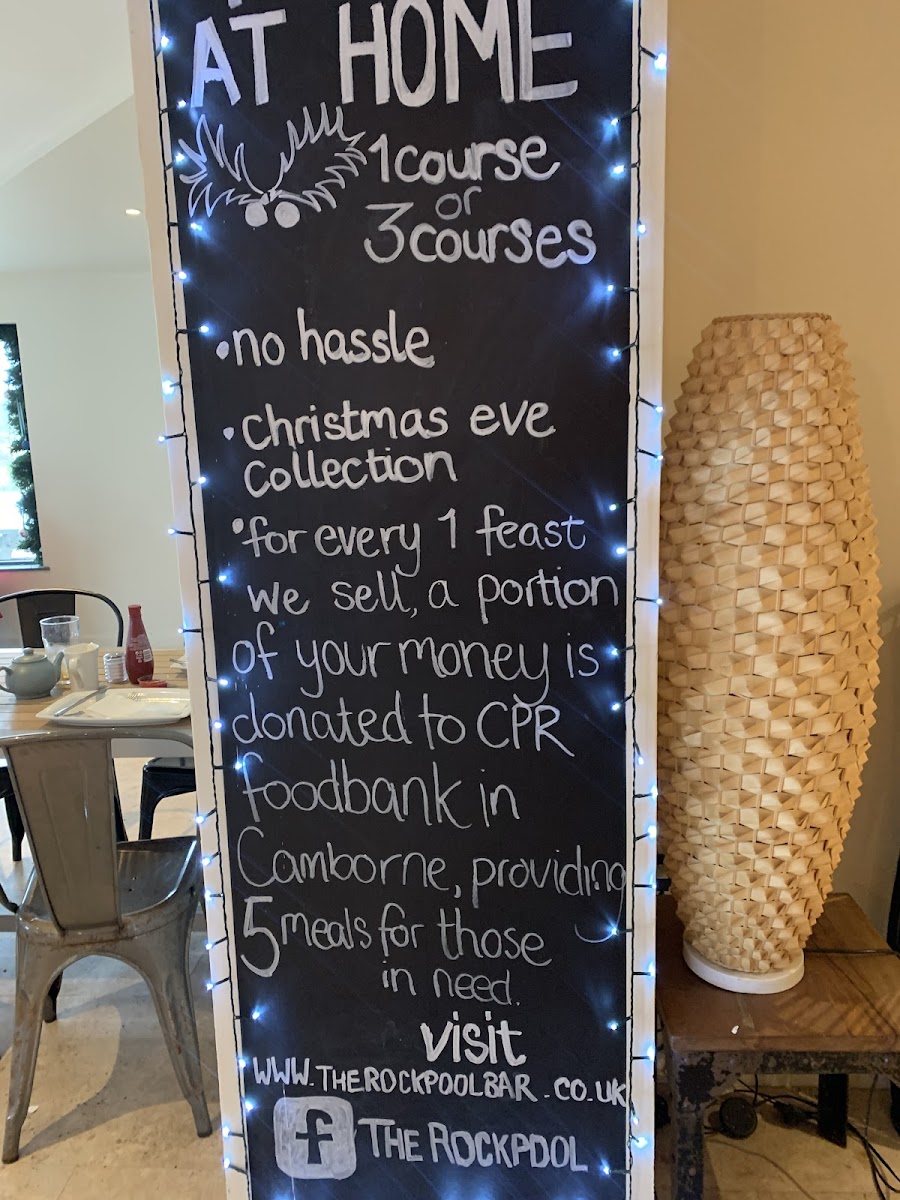 AT HOME
1 course
or
3 courses
• no hassle
• Christmas eve
Collection
• for every 1 feast
we sell, a portion
of your money is
donated to CPR
foodbank in
Camborne, providing
5 meals for those
in need.
visit
WWW.THEROCKPOOLBAR.CO.UK
f THE ROCKPOOL